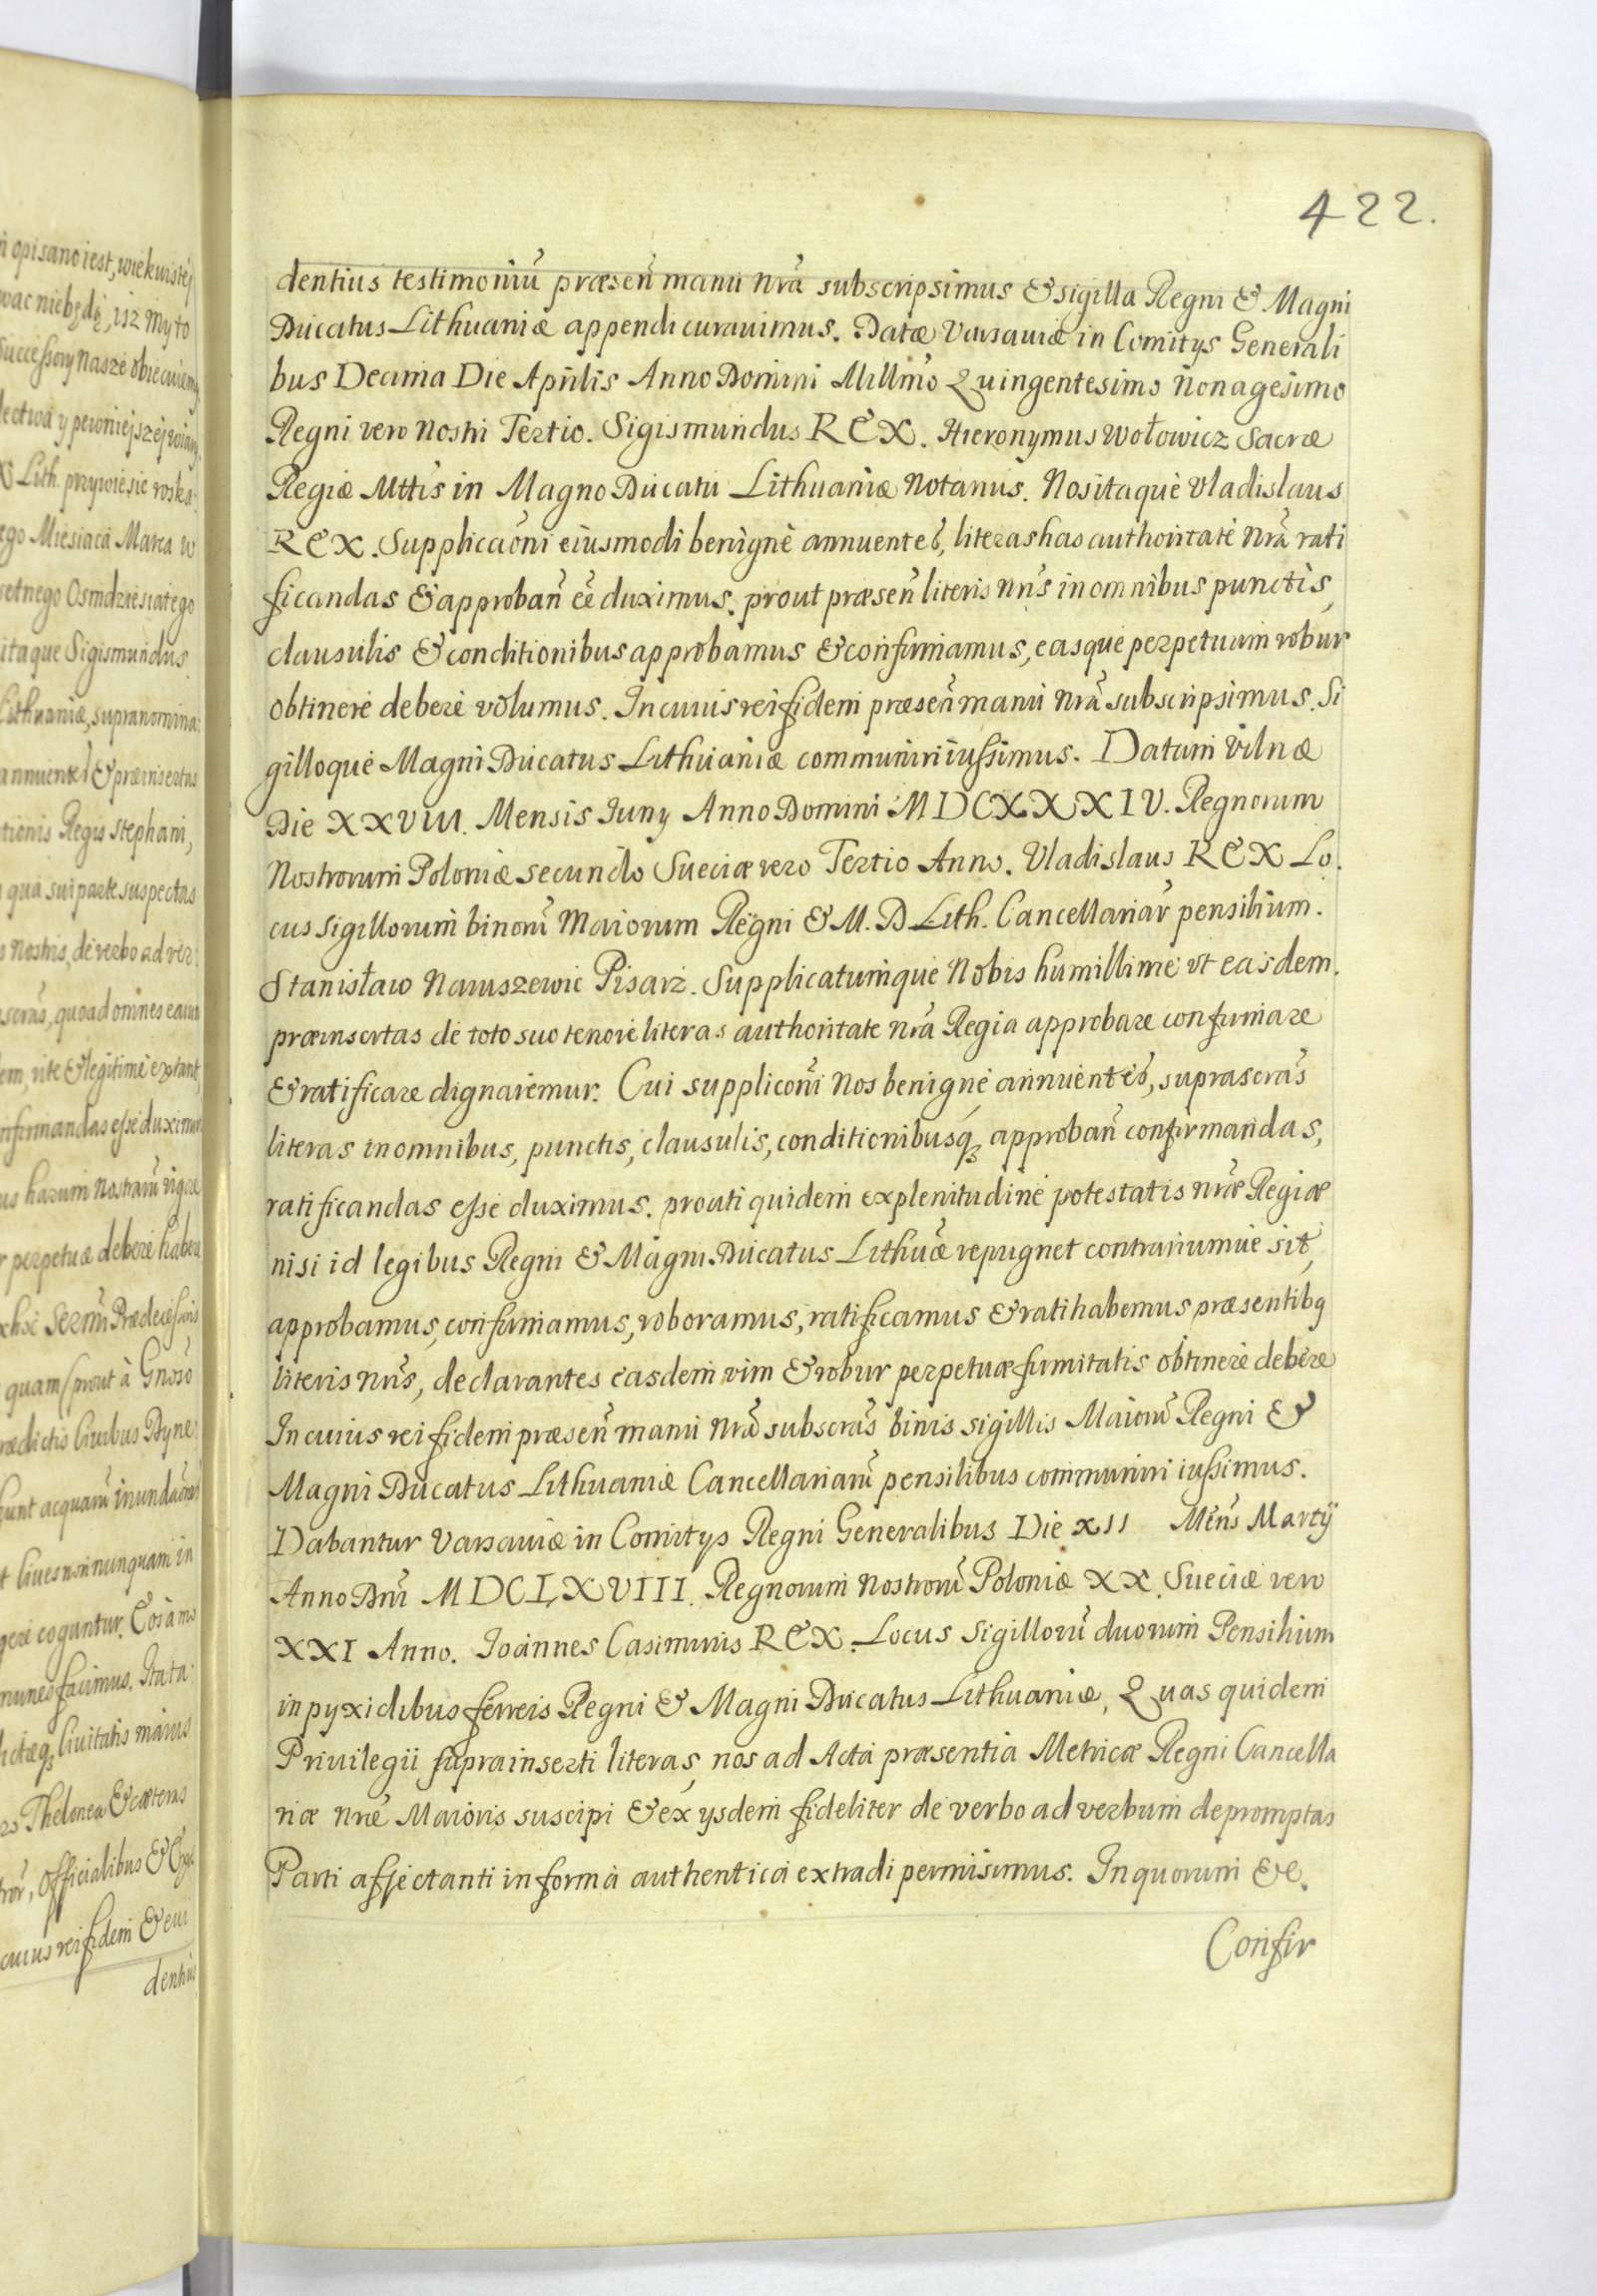 422.
dentius testimoniũ præsen̄ manu nr̃a subscripsimus & sigilla Regni & Magni
Ducatus Lithuaniæ appendi curauimus. Datæ Varsauiæ in Comitys Generali
bus Decima Die Aprilis Anno Domini Millmo Quingentesimo Nonagesimo
Regni vero Nostri Tertio. Sigismundus REX. Hieronymus Wołowicz Sacræ
Regiæ Mttis in Magno Ducatu Lithuaniæ Notarius. Nos itaque Vladislaus
REX. Supplicaõni eiusmodi benignè annuentes, literas has authoritate nr̃a rati
ficandas & approban̄ eẽ duximus. prout præsen̄ literis nr̃is in omnibus punctis,
clausulis & conditionibus approbamus & confirmamus, easque perpetuum robur
obtinere debere volumus. In cuius rei fidem præsen̄ manu nr̃a subscripsimus. Si
gilloque Magni Ducatus Lithuaniæ communiri iussimus. Datum Vilnæ
Die XXVIII. Mensis Juny Anno Domini MDCXXXIV. Regnorum
Nostrorum Poloniæ secundo Sueciæ vero Tertio Anno. Vladislaus REX Lo.
cus sigillorum binorũ Maiorum Regni & M. D Lith. Cancellariar̃ pensilium.
Stanisław Naruszewic Pisarz. Supplicatumque Nobis humillime vt easdem.
præinsertas de toto suo tenore literas authoritate nr̃a Regia approbare confirmare
& ratificare dignaremur. Cui supplicõni Nos benigne annuentes, suprascrãs
literas in omnibus, punctis, clausulis, conditionibusq̨ approban̄ confirmandas,
ratificandas esse duximus. prout quidem ex plenitudine potestatis nr̃æ Regiæ
nisi id legibus Regni & Magni Ducatus Lithuæ̃ repugnet contrariumue sit,
approbamus, confirmamus, roboramus, ratificamus & ratihabemus præsentibq
literis nr̃is, declarantes easdem vim & robur perpetuæ firmitatis obtinere debere
In cuius rei fidem præsen̄ manu nr̃a subscrãs binis sigillis Maiorũ Regni &
Magni Ducatus Lithuaniæ Cancellariarũ pensilibus communiri iussimus.
Dabantur Varsauiæ in Comitys Regni Generalibus Die XII Men̄s Martÿ
Anno Dnĩ MDCLXVIII. Regnorum Nostrorũ Poloniæ XX. Sueciæ vero
XXI Anno. Joannes Casimirus REX. Locus Sigillorũ duorum Pensilium
in pyxidibus ferreis Regni & Magni Ducatus Lithuaniæ, Quas quidem
Priuilegii suprainserti literas, nos ad Acta præsentia Metricæ Regni Cancella
riæ nr̃e Maioris suscipi & ex ysdem fideliter de verbo ad verbum depromptas
Parti affectanti in forma authentica extradi permisimus. In quorum &c.
Confir